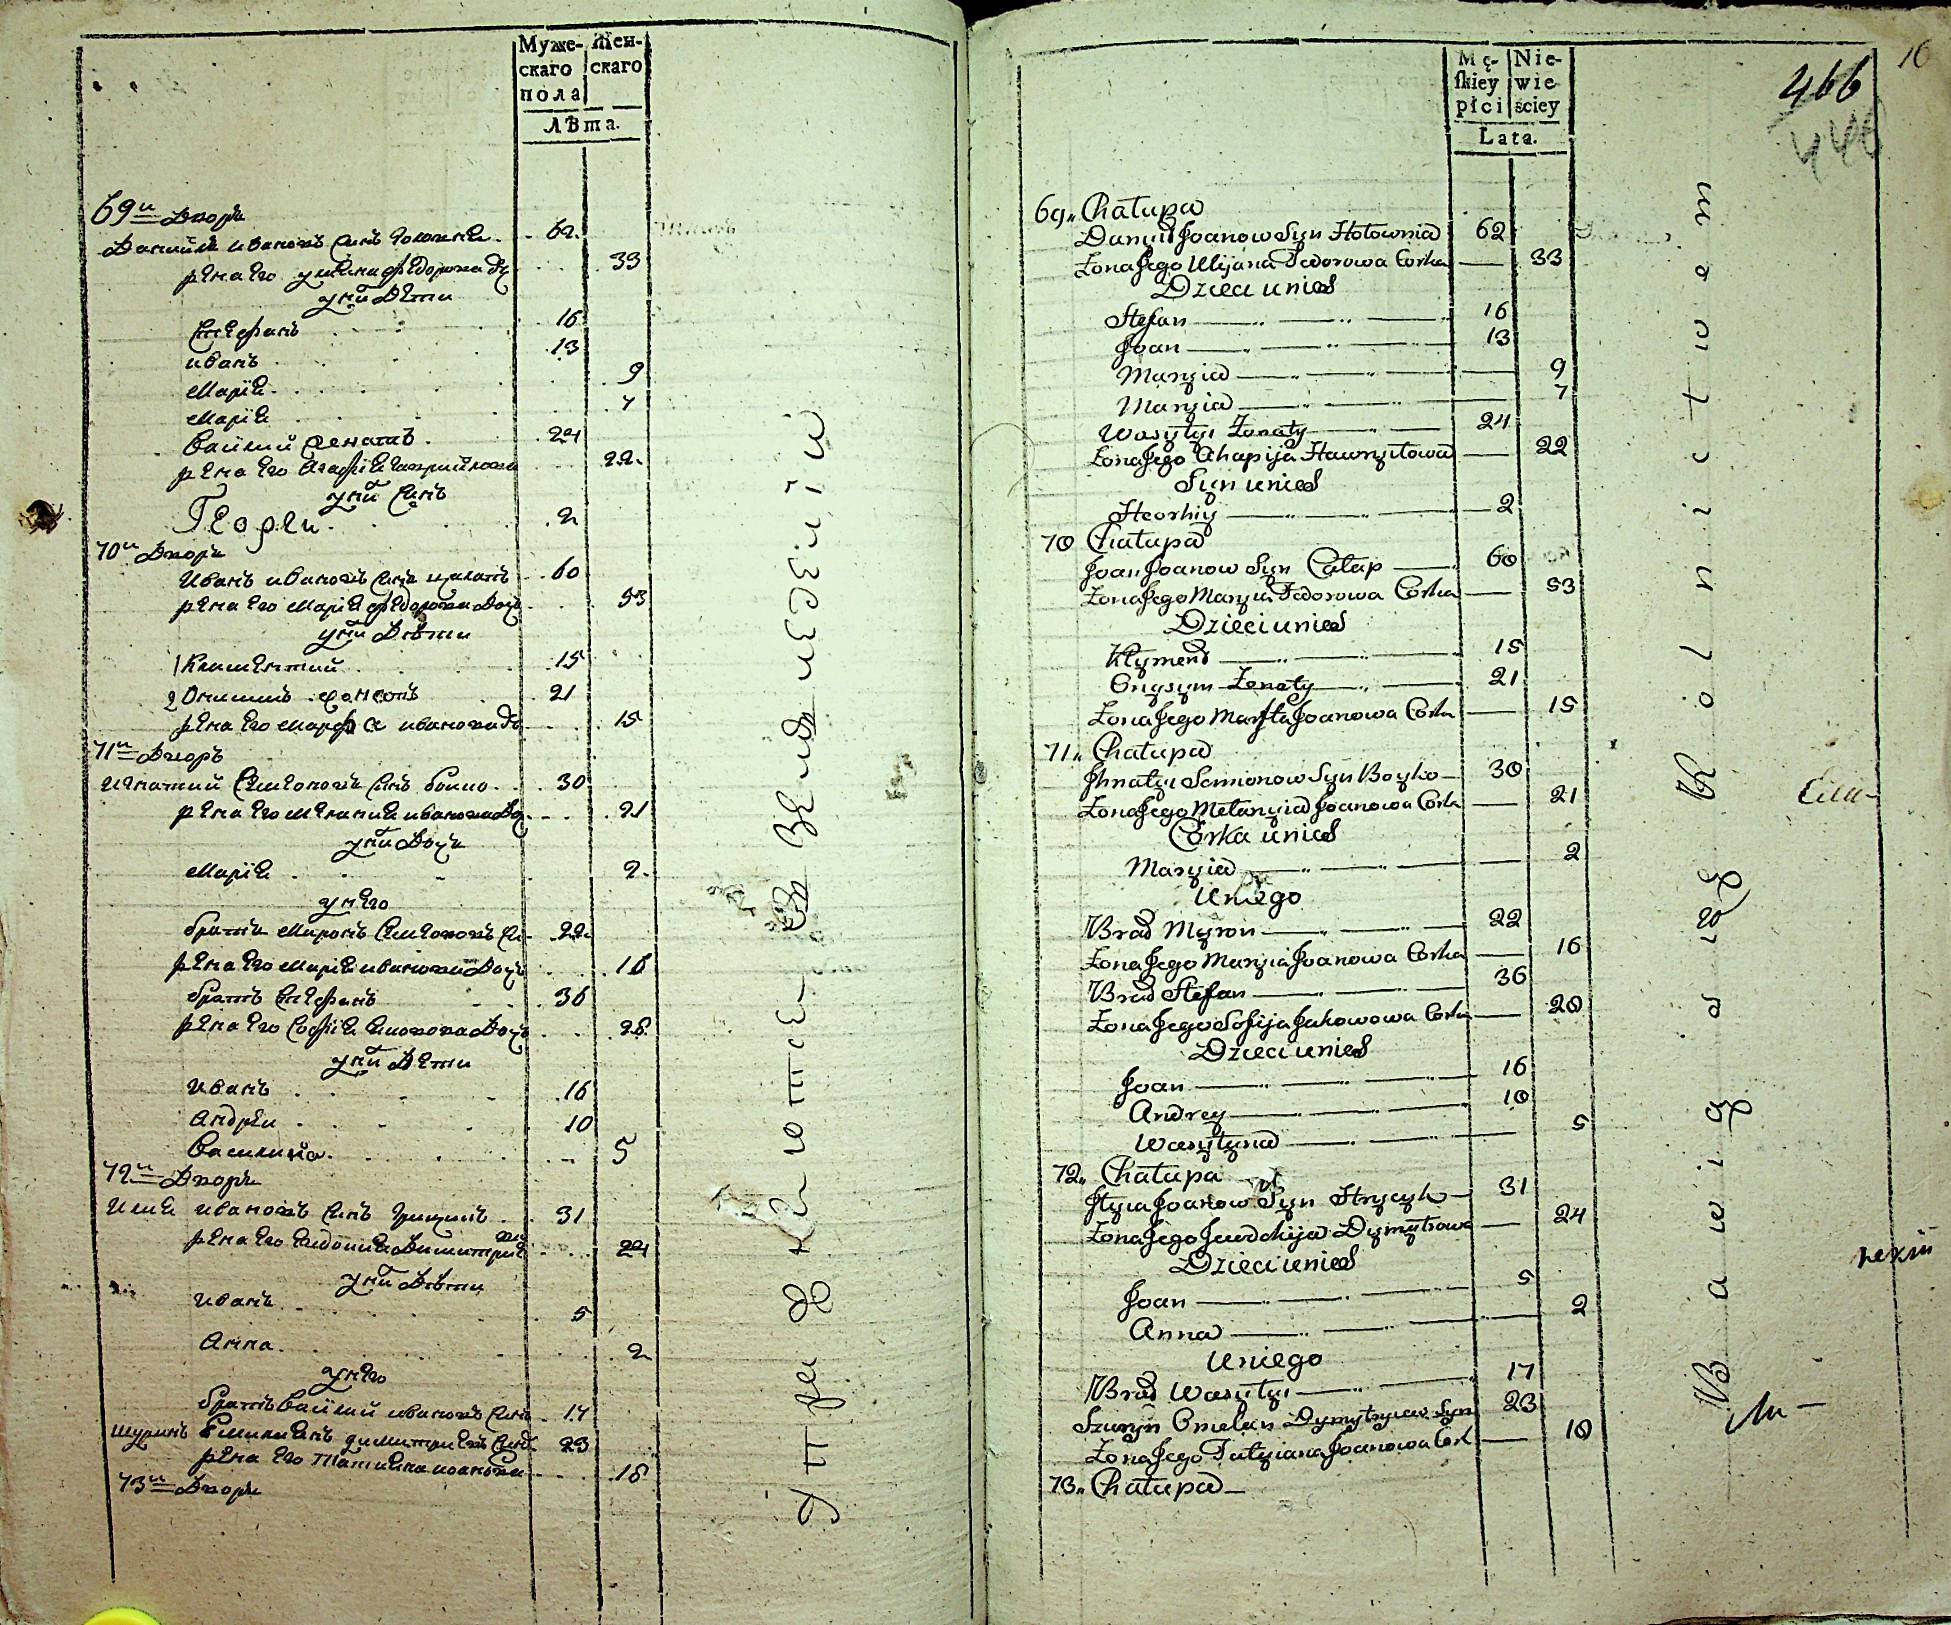 Муже-
скаго
пола
Жен-
скаго
Лѣта.
69й Дворъ
Даниилъ Ивановъ Сынъ Головня 62.
жена Его Улияна Федорова До 33
у нй Дѣти
Стефанъ 16
Иванъ 13
Марія 9
Марія 7
Василий Женатъ 24
жена Его Агафія Гаврилова 22.
у нй Сынъ
Георги. 2
70й Дворъ
Иванъ Ивановъ Сынъ 60
жена Его Марія Федорова Дочь 53
у нй Дѣти
1 Климентий 15
2 Онисимъ женатъ 21
жена Его Марфа Иванова До 15
71й Дворъ
Игнатий Семеновъ Сынъ Бойко 30
жена Его Мелания Иванова До 21
у нй Дочь
Марія 2.
у него
братъ Миронъ Семеновъ Сы 22.
жена Его Марія Иванова Дочь 16
братъ Стефанъ 36
жена Его Софія Дочь 28.
у нй Дѣти
Иванъ 16
Андрей 10
Василина. 5
72й Дворъ
Илія Ивановъ Сынъ Грицикъ 31
жена Его Евдокия Димитрие 24
у нй Дѣти
Иванъ 5
Анна. 2
у него
братъ Василий Ивановъ Сынъ 17
шуринъ Емилиянъ Димитриевъ Сынъ 23
жена Его Татияна Иванова 18
73й Дворъ
16
466
446
Mę-
ſkiey
płci
Nie-
wie
ściey
Lata.
69„ Chałupa
Danyił Joanow Syn Hołownia 62
Żona Jego Ulijana Fedorowa Corka 33
Dzieci unich
Stefan 16
Joan 13
Maryia 9
Maryia 7
Wasyłyi Żonaty 24
Żona Jego Ahapija Hawryłowa 22
Syn unich
Heorhiy 2
70 Chałupa
Joan Joanow Syn Całap 60
Żona Jego Maryia Fedorowa Corka 53
Dzieci unich
Kłyment 15
Onysym Żonaty 21
Żona Jego Marfta Joanowa Corka 15
71„ Chałupa
Jhnatyi Semionow Syn Boyko 30
Żona Jego Mełanyia Joanowa Corka 21
Córka unich
Maryia 2
Uniego
Brad Myron 22
Żona Jego Maryia Joanowa Corka 16
Brad Stefan 36
Żona Jego Sofija Jakowowa Corka 28
Dzieci unich
Joan 16
Andrey 10
Wasyłyna 5
72„ Chałupa
Jłyia Joanow Syn Hrycyk 31
Żona Jego Jewdokija Dymytrowa 24
Dzieci unich
Joan 5
Anna 2
Uniego
Brad Wasyłyi 17
Szuryn Omelan Dymytryiew Syn 23
Żona Jego Tatyiana Joanowa Cork 18
73„ Chałupa
Bawią się Rolnictwem